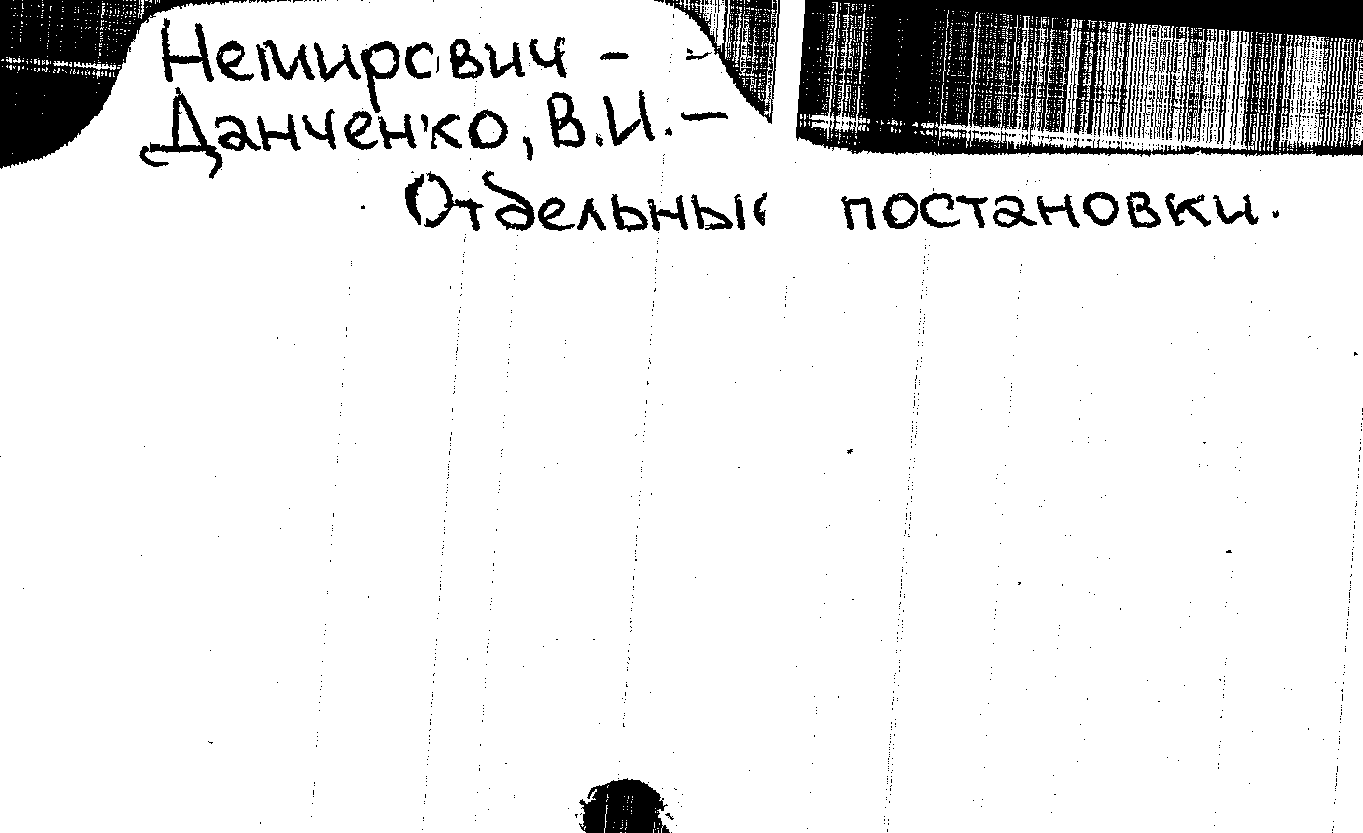 Немирович -
Данченко, В.И. —
Отдельные постановки.